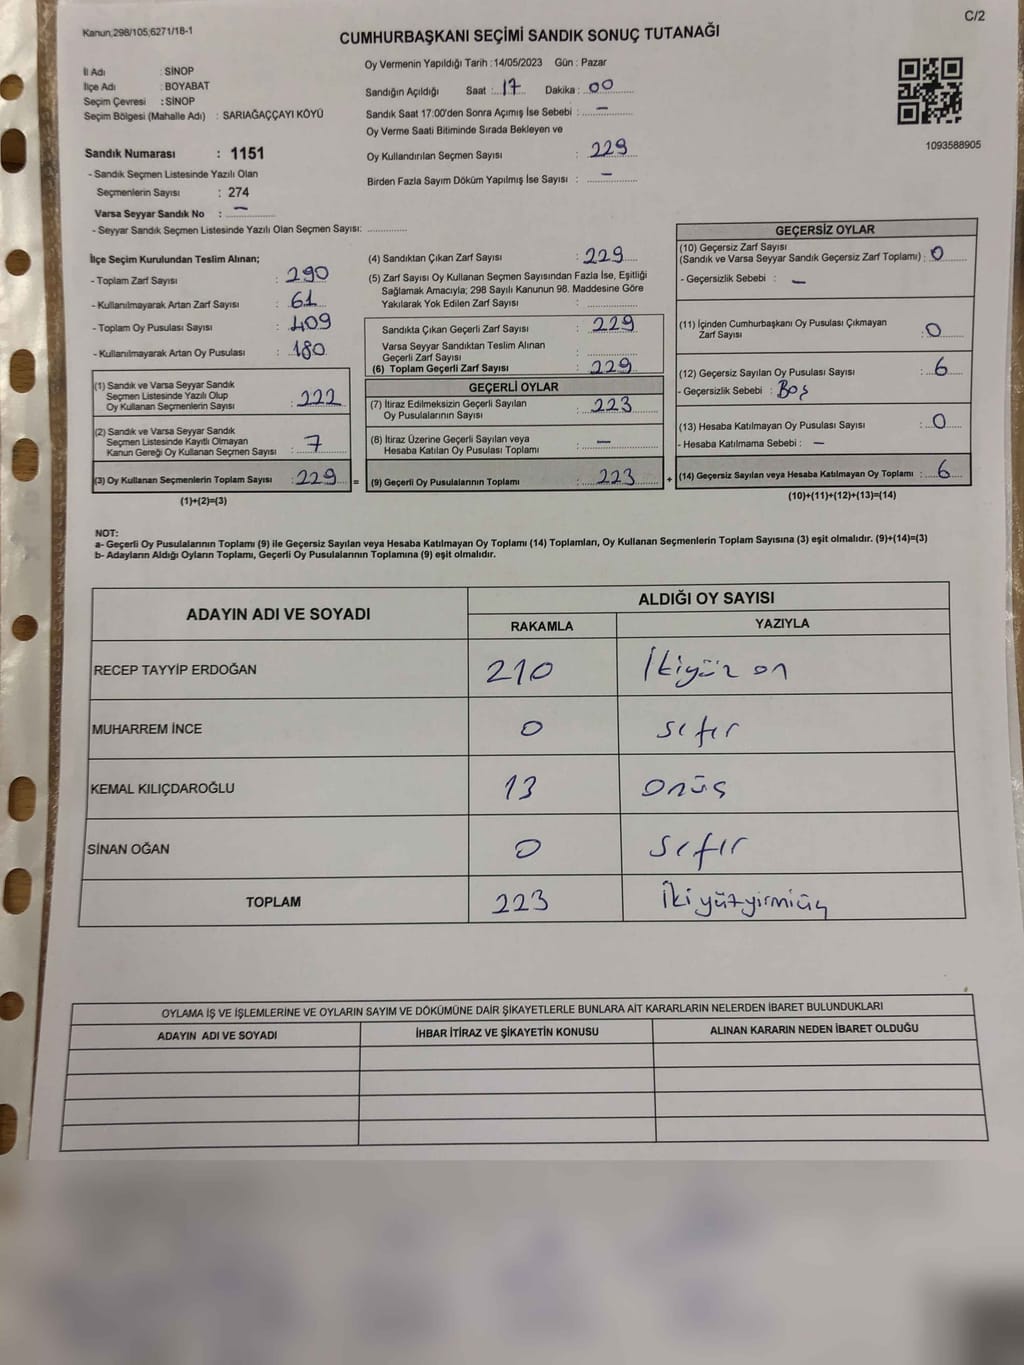 C/2
Kanun;298/105;6271/18-1
CUMHURBAŞKANI SEÇİMİ SANDIK SONUÇ TUTANAĞI
İl Adı : SİNOP
İlçe Adı : BOYABAT
Seçim Çevresi : SİNOP
Seçim Bölgesi (Mahalle Adı) : SARIAĞAÇÇAYI KÖYÜ
Sandık Numarası : 1151
- Sandık Seçmen Listesinde Yazılı Olan
Seçmenlerin Sayısı : 274
Varsa Seyyar Sandık No : –
- Seyyar Sandık Seçmen Listesinde Yazılı Olan Seçmen Sayısı: ..............
Oy Vermenin Yapıldığı Tarih : 14/05/2023 Gün : Pazar
Sandığın Açıldığı Saat : 17 Dakika : 00
Sandık Saat 17:00'den Sonra Açımış İse Sebebi : –
Oy Verme Saati Bitiminde Sırada Bekleyen ve
Oy Kullandırılan Seçmen Sayısı : 229
Birden Fazla Sayım Döküm Yapılmış İse Sayısı : –
1093588905
İlçe Seçim Kurulundan Teslim Alınan;
- Toplam Zarf Sayısı : 290
- Kullanılmayarak Artan Zarf Sayısı : 61
- Toplam Oy Pusulası Sayısı : 409
- Kullanılmayarak Artan Oy Pusulası : 180
(1) Sandık ve Varsa Seyyar Sandık
Seçmen Listesinde Yazılı Olup
Oy Kullanan Seçmenlerin Sayısı : 222
(2) Sandık ve Varsa Seyyar Sandık
Seçmen Listesinde Kayıtlı Olmayan
Kanun Gereği Oy Kullanan Seçmen Sayısı : 7
(3) Oy Kullanan Seçmenlerin Toplam Sayısı : 229 =
(1)+(2)=(3)
(4) Sandıktan Çıkan Zarf Sayısı : 229
(5) Zarf Sayısı Oy Kullanan Seçmen Sayısından Fazla İse, Eşitliği
Sağlamak Amacıyla; 298 Sayılı Kanunun 98. Maddesine Göre
Yakılarak Yok Edilen Zarf Sayısı : ..............
Sandıkta Çıkan Geçerli Zarf Sayısı : 229
Varsa Seyyar Sandıktan Teslim Alınan
Geçerli Zarf Sayısı : ..............
(6) Toplam Geçerli Zarf Sayısı : 229
GEÇERLİ OYLAR
(7) İtiraz Edilmeksizin Geçerli Sayılan
Oy Pusulalarının Sayısı : 223
(8) İtiraz Üzerine Geçerli Sayılan veya
Hesaba Katılan Oy Pusulası Toplamı : –
(9) Geçerli Oy Pusulalarının Toplamı : 223 +
GEÇERSİZ OYLAR
(10) Geçersiz Zarf Sayısı
(Sandık ve Varsa Seyyar Sandık Geçersiz Zarf Toplamı) : 0
- Geçersizlik Sebebi : –
(11) İçinden Cumhurbaşkanı Oy Pusulası Çıkmayan
Zarf Sayısı : 0
(12) Geçersiz Sayılan Oy Pusulası Sayısı : 6
- Geçersizlik Sebebi : Boş
(13) Hesaba Katılmayan Oy Pusulası Sayısı : 0
- Hesaba Katılmama Sebebi : –
(14) Geçersiz Sayılan veya Hesaba Katılmayan Oy Toplamı : 6
(10)+(11)+(12)+(13)=(14)
NOT:
a- Geçerli Oy Pusulalarının Toplamı (9) ile Geçersiz Sayılan veya Hesaba Katılmayan Oy Toplamı (14) Toplamları, Oy Kullanan Seçmenlerin Toplam Sayısına (3) eşit olmalıdır. (9)+(14)=(3)
b- Adayların Aldığı Oyların Toplamı, Geçerli Oy Pusulalarının Toplamına (9) eşit olmalıdır.
ADAYIN ADI VE SOYADI ALDIĞI OY SAYISI
RAKAMLA YAZIYLA
RECEP TAYYİP ERDOĞAN 210 İkiyüz on
MUHARREM İNCE 0 sıfır
KEMAL KILIÇDAROĞLU 13 onüç
SİNAN OĞAN 0 sıfır
TOPLAM 223 İkiyüzyirmiüç
OYLAMA İŞ VE İŞLEMLERİNE VE OYLARIN SAYIM VE DÖKÜMÜNE DAİR ŞİKAYETLERLE BUNLARA AİT KARARLARIN NELERDEN İBARET BULUNDUKLARI
ADAYIN ADI VE SOYADI İHBAR İTİRAZ VE ŞİKAYETİN KONUSU ALINAN KARARIN NEDEN İBARET OLDUĞU